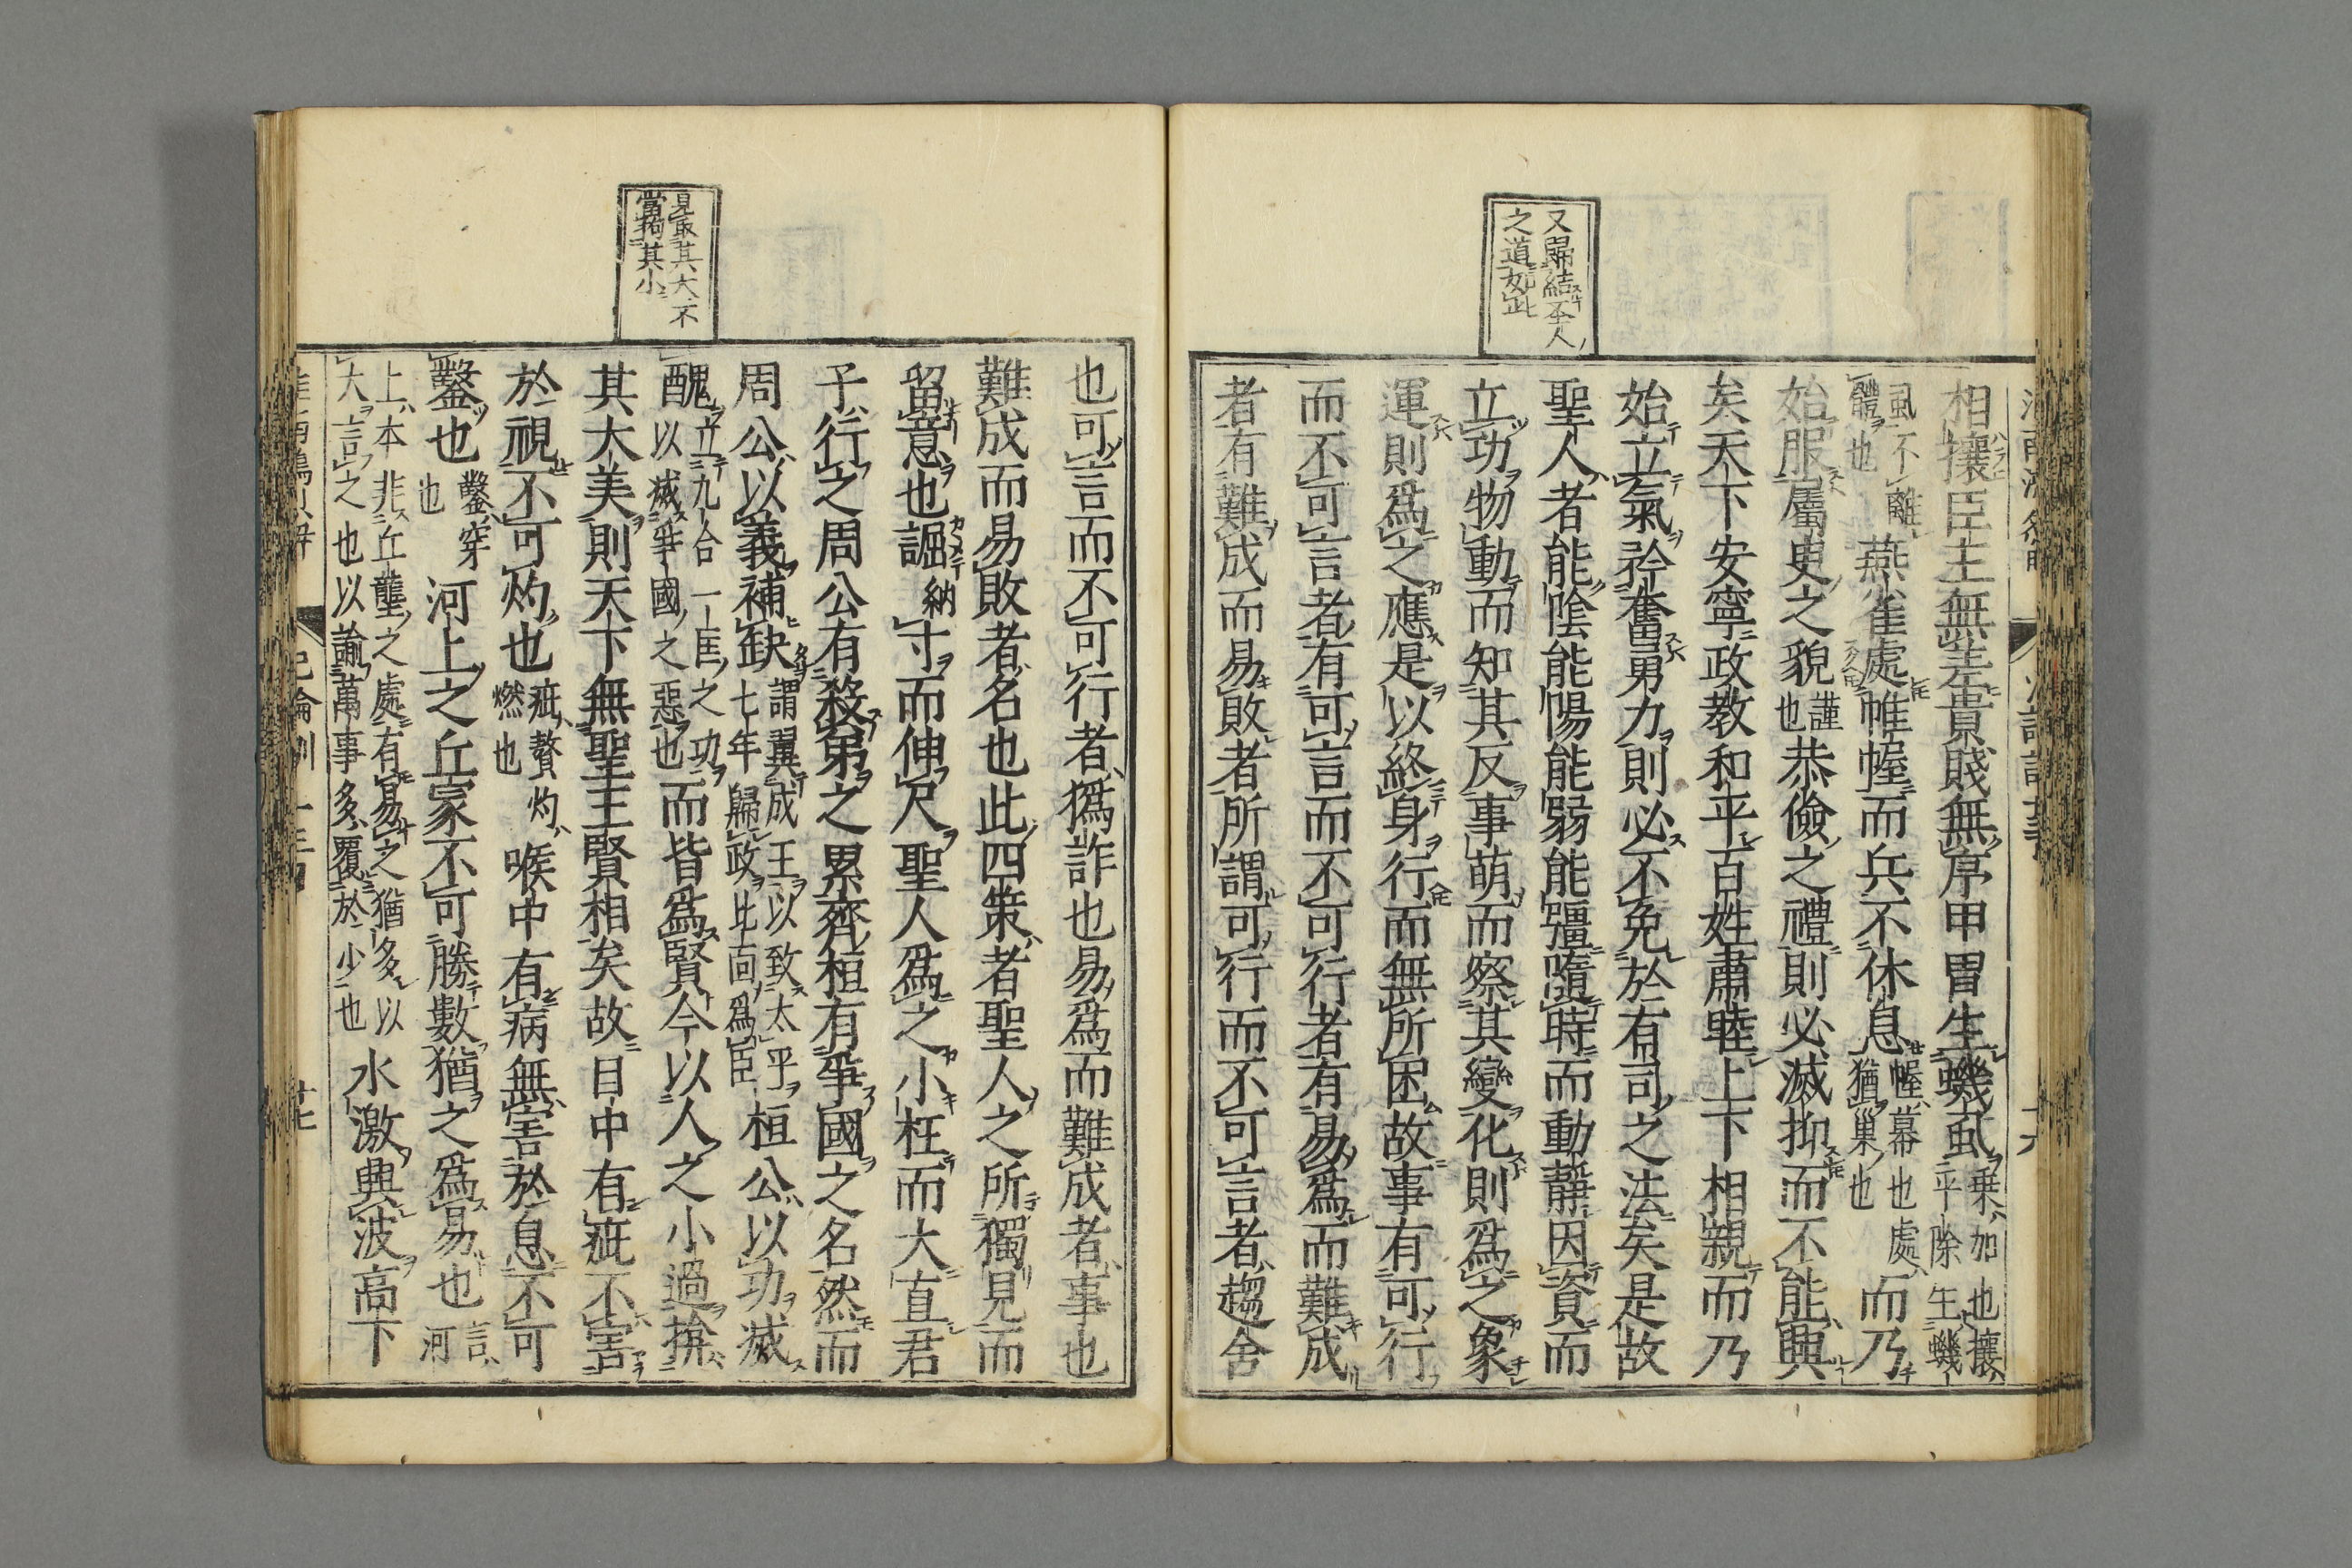 又歸結至人
之道如此
相攘臣主無差貴賤無序甲冑生蟣虱乘加也攘
平除生蟣
虱不離
體也燕雀處帷幄而兵不休息幄幕也處
猶巢也而乃
始服屬臾之貌謹
也恭儉之禮則必滅抑而不能興
矣天下安寧政教和平百姓肅睦上下相親而乃
始立氣矜奮勇力則必不免於有司之法矣是故
聖人者能陰能陽能弱能彊隨時而動靜因資而
立功物動而知其反事萌而察其變化則爲之象
運則爲之應是以終身行而無所困故事有可行
而不可言者有可言而不可行者有易爲而難成
者有難成而易敗者所謂可行而不可言者趨舍
見取其大不
當拘其小
也可言而不可行者僞詐也易爲而難成者事也
難成而易敗者名也此四策者聖人之所獨見而
留意也誳納寸而伸尺聖人爲之小枉而大直君
子行之周公有殺弟之累齊桓有爭國之名然而
周公以義補缺謂翼成王以致太平
七年歸政北面爲臣桓公以功滅
醜立九合一匡之功
以滅爭國之惡也而皆爲賢今以人之小過揜
其大美則天下無聖王賢相矣故目中有疵不害
於視不可灼也疵贅灼
燃也喉中有病無害於息不可
鑿也鑿穿
也河上之丘冢不可勝數猶之爲易也言
河
上本非丘壟之處有易之猶多以
大言之也以諭萬事多覆於少也水激興波高下